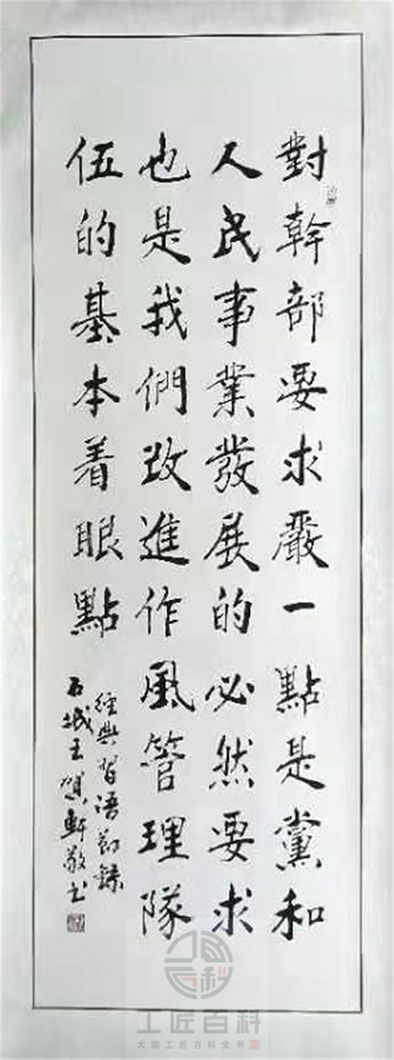 對幹部要求嚴一點是黨和
人民事業發展的必然要求
也是我們改進作風管理隊
伍的基本着眼點
經典習语節錄
石城王賀軒敬书
工匠百科
大国工匠百科全书